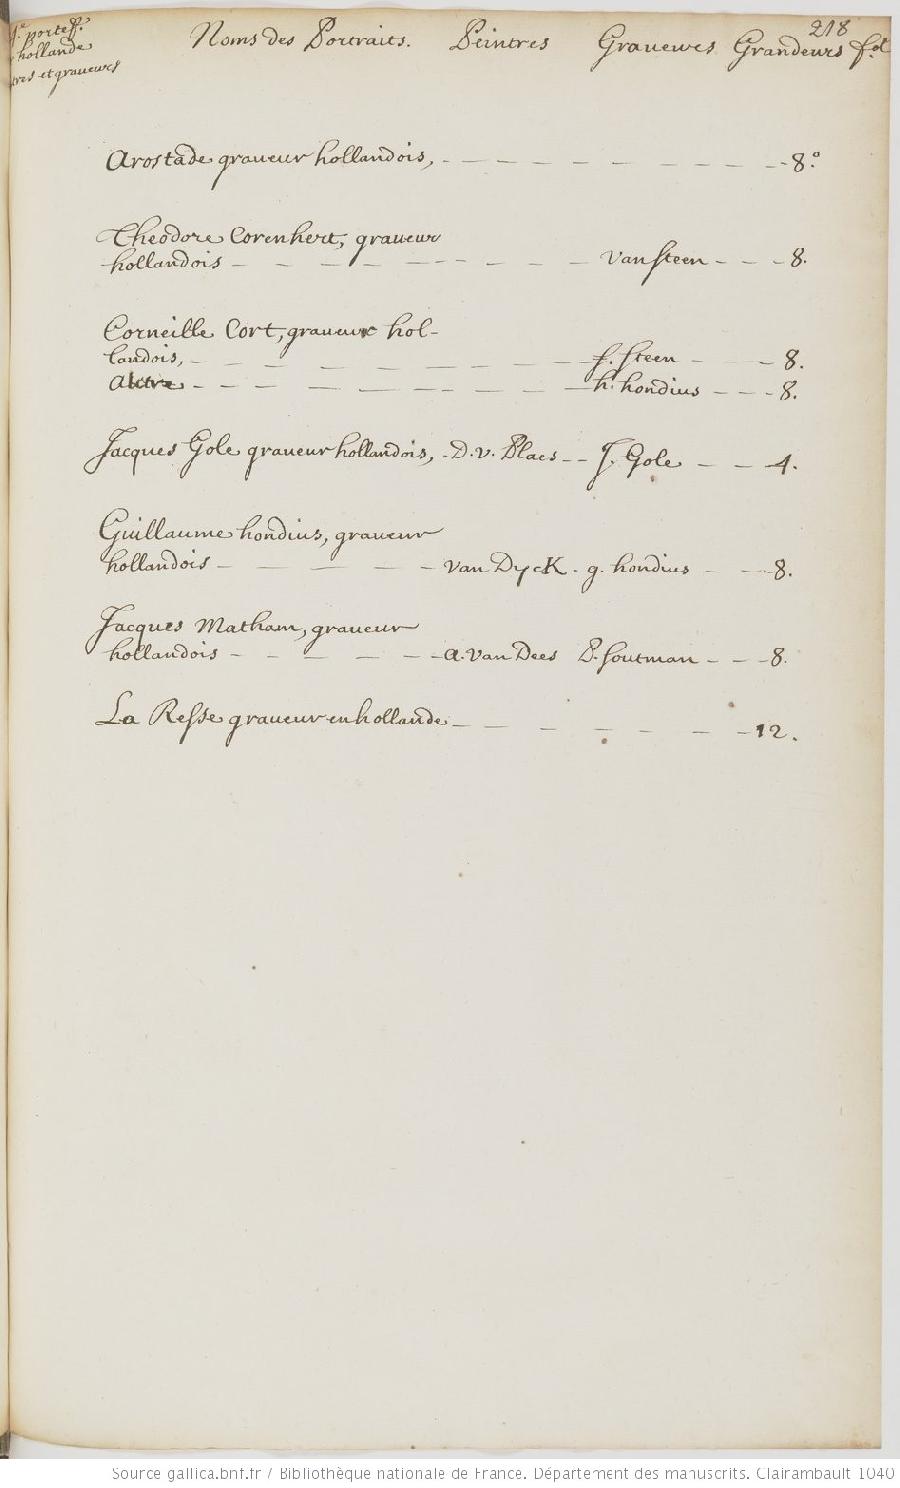 218
portef.
hollande
et graveurs
Noms des Portraits. Peintres Graveurs Grandeurs fol
Arostade graveur hollandois, 8°
Theodore Corenhert, graveur
hollandois van Steen 8.
Corneille Cort, graveur hol-
landois, f. Steen 8.
Autre h. hondius 8.
Jacques Gole graveur hollandois, D. v. Plaes J. Gole 4.
Guillaume hondius, graveur
hollandois van Dyck. g. hondius 8.
Jacques Matham, graveur
hollandois A. Van Dees P. Soutman 8.
La Resse graveur en hollande 12.
Source gallica.bnf.fr / Bibliothèque nationale de France. Département des manuscrits. Clairambault 1040